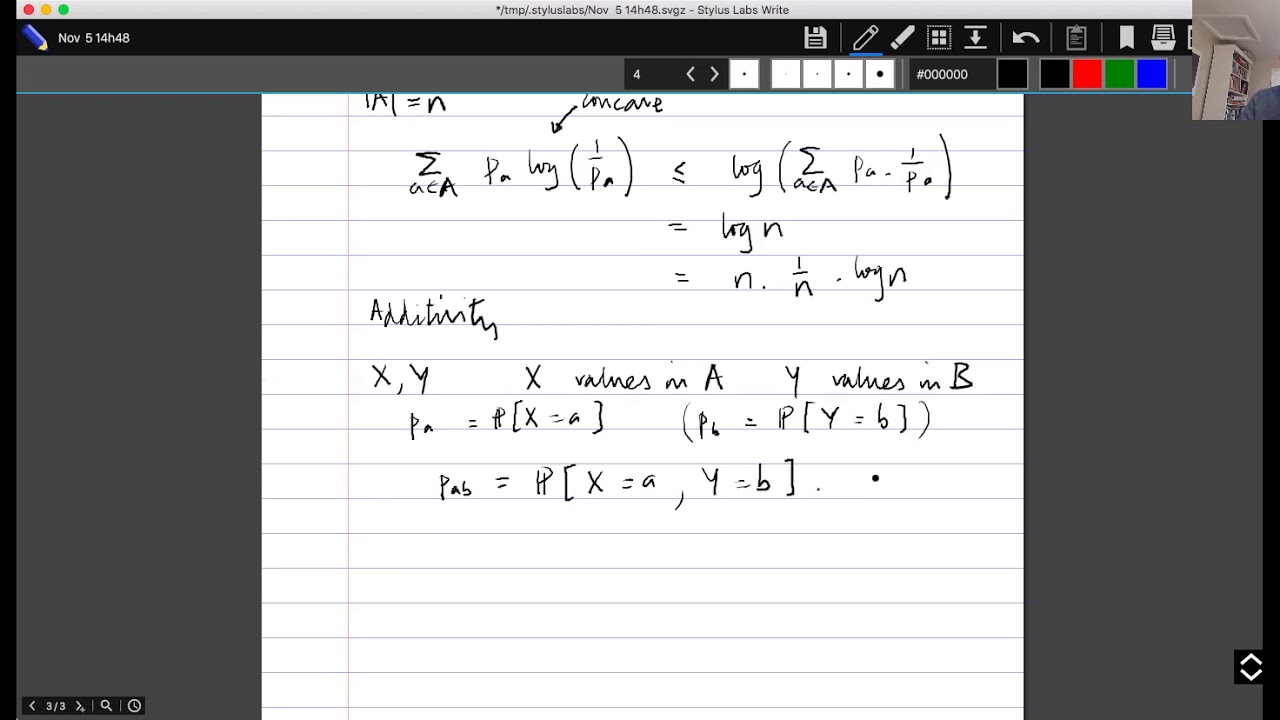 */tmp/.styluslabs/Nov 5 14h48.svgz - Stylus Labs Write
Nov 5 14h48
4
#000000
|A| = n
concave
∑_{a∈A} p_a log(1/p_a) ≤ log(∑_{a∈A} p_a · 1/p_a)
= log n
= n · 1/n · log n
Additivity
X, Y X values in A Y values in B
p_a = ℙ[X = a] (p_b = ℙ[Y = b])
p_ab = ℙ[X = a, Y = b].
3/3